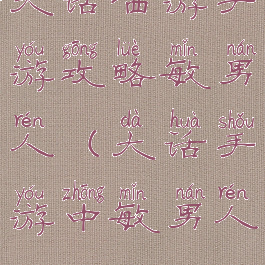 人 话 描 游 手
yóu gōng lüè mǐn nán
游 攻 略 敏 男
rén dà huà shǒu
人 （ 大 话 手
yóu zhōng mǐn nán rén
游 中 敏 男 人